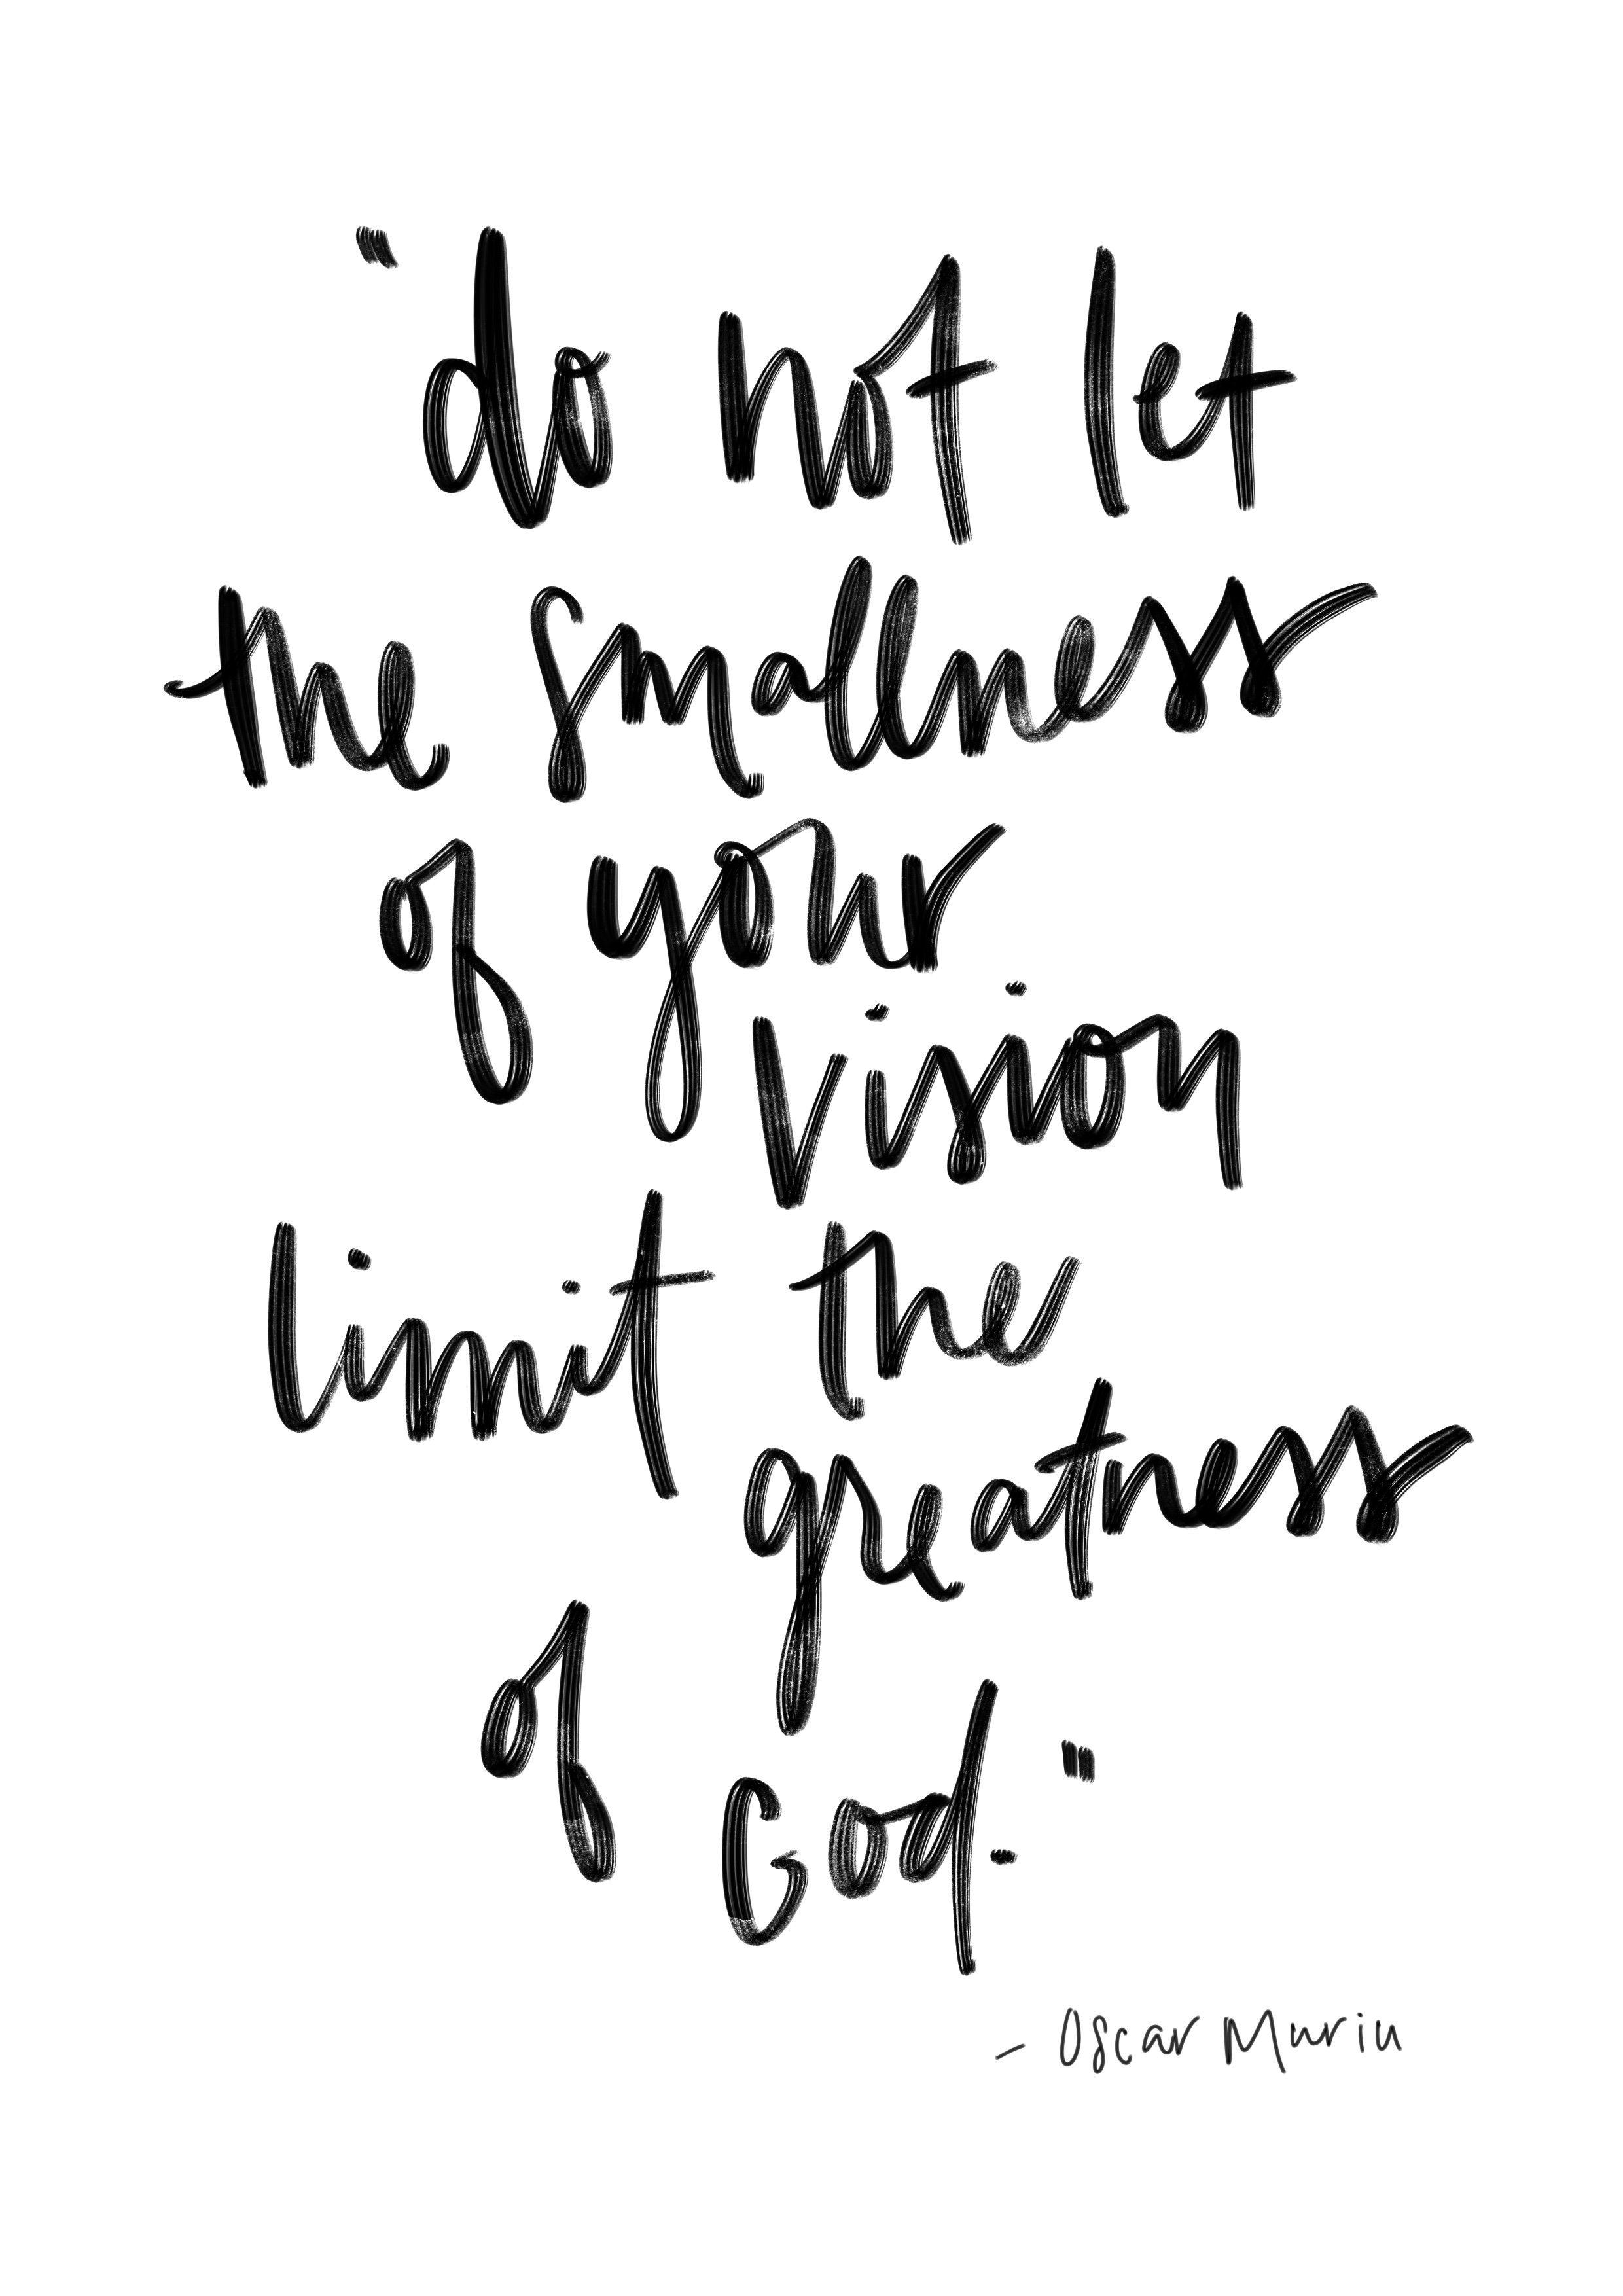 "do not let
the smallness
of your
vision
limit the
greatness
of
God."
- Oscar Muriu